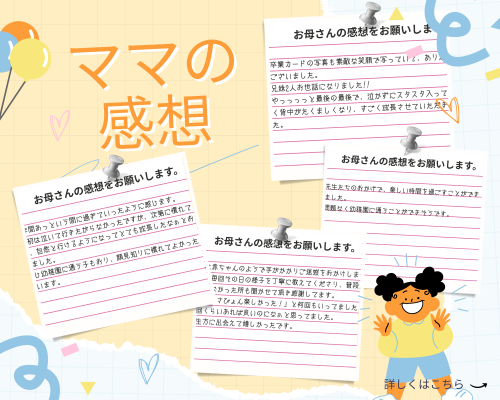 ママの
感想
お母さんの感想をお願いしま
卒業カードの写真も素敵な笑顔で写っていて、あり
ございました。
兄妹2人お世話になりました!!
やっっっっと最後の最後で、泣かずにスタスタ入って
く背中がたくましくなり、すごく成長させていただき
た。
お母さんの感想をお願いします。
先生たちのおかげで、楽しい時間を過ごすことができ
ました。
問題なく幼稚園に通うことができそうです。
お母さんの感想をお願いします。
間あっという間に過ぎていったように感じます。
初は泣いて行きたがらなかったですが、次第に慣れて
、自然と行けるようになってとても成長したなぁと
ました。
じ幼稚園に通う子もおり、顔見知りに慣れてよかった
います。
お母さんの感想をお願いします。
赤ちゃんのようで手がかかりご迷惑をおかけしま
毎回その日の様子を丁寧に教えてくださり、普段
さかった所も聞かせて頂き感謝してます。
マぴょん楽しかった！」と何回もいってました
間くらいあれば良いのになぁと思ってました。
生方に出会えて嬉しかったです。
詳しくはこちら